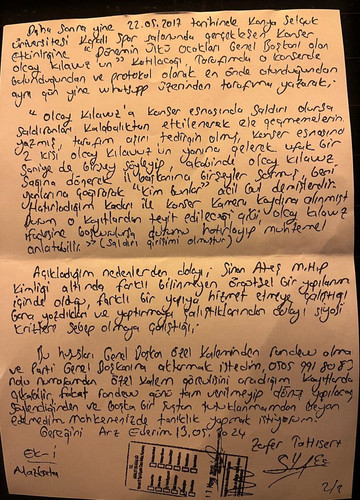 Daha sonra yine 22.05.2017 tarihinde Konya Selçuk
Üniversitesi Kapalı Spor salonunda gerçekleşen Konser
Etkinliğine "Dönemin Ülkü Ocakları Genel Başkanı olan
Olcay Kılavuz'un" Katılacağı, Tarafımda o konserde
bulunduğundan ve protokol olarak en önde oturduğundan
aynı gün yine whatsapp üzerinden tarafıma yazarak;
"Olcay Kılavuz'a Konser esnasında Saldırı olursa
Saldıranları Kalabalıktan etkilenerek ele geçmemelerin
yazmış, tarafım aşırı tedirgin olmuş, Konser esnasında
2 kişi olcay Kılavuz'un yanına gelerek ufak bir
Saniye de birşey söyleyip akabinde olcay Kılavuz
Sağına dönerek il başkanına birşeyler sormuş, beni
yanlarına çağırarak "Kim bunlar"
Hatırladığım Kadarı ile Konser Kamera Kaydına alınmıştı
Durum o Kayıtlardan teyit edileceği gibi, olcay Kılavuz
ifadesine başvurulursa durumu hatırlayıp muhtemel
anlatabilir." (Saldırı girişimi olmuştur)
Açıkladığım nedenlerden dolayı; Sinan Ateş M.H.P
Kimliği altında farklı bilinmeyen Örgütsel bir yapıların
içinde olduğu, farklı bir yapıya hizmet etmeye çalıştığı
bana yazdıkları ve yaptırmaya çalıştıklarından dolayı siyasi
Kritleri sebep olmaya çalıştığı;
Bu hususları Genel Başkan Özel Kaleminden randevu alma
ve Parti Genel Başkanına aktarmak istedim,
nolu numaramdan özel Kalem görevlisini aradığım Kayıtlarda
çıkabilir, fakat randevu günü tam verilmeyip dönüş yapılacağı
söylendiğinden ve başka bir suçtan tutuklanmamdan beyan
edemedim Mahkemenizde tanıklık yapmak istiyorum.
Gereğini Arz Ederim 13.05.2024
Ek-1
Zafer
2/2